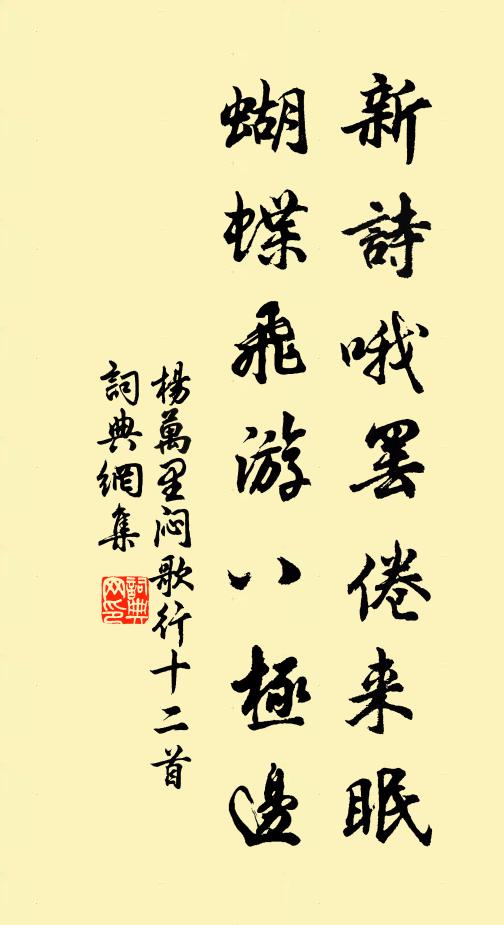 新詩哦罢倦来眠
蝴蝶飛游八極邊
楊萬里闷歌行十二首
詞典網集
詞典
网印